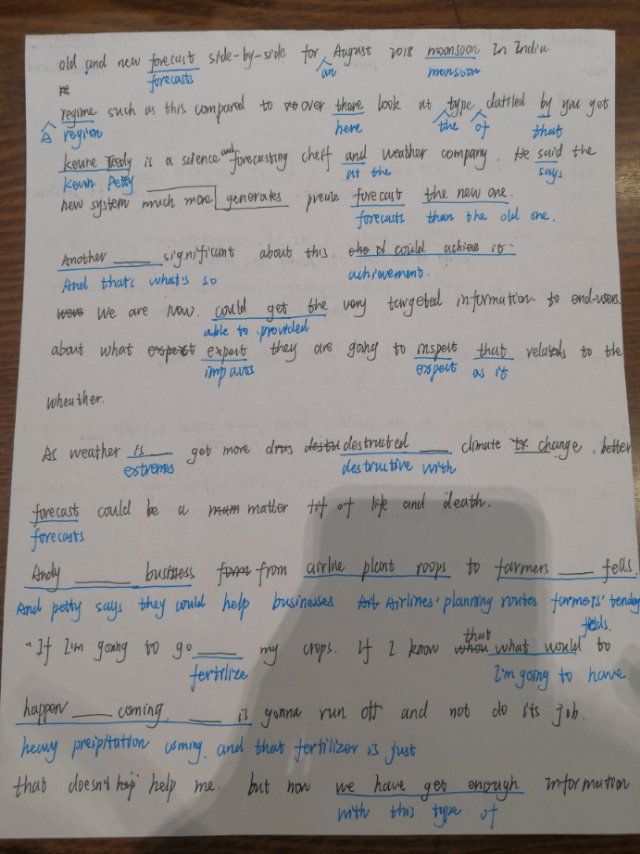 old and new forecast side-by-side for August 2018 moonsoon In India
forecasts an monsoon
regime such as this compared to over there look at type datiled by you get
A region here the of that
keune Teedy is a science and forecasting cheif and weather company. He said the
Kevin Petty at the says
new system much more generates preuie forecast the new one.
forecasts than the old one.
Another ____ significant about this could achieve it
And that's what's so achievement.
we are now could get the very targeted information to end-users
able to provided
about what expert they are going to inspect that relateds to the
impacts expect as it
wheuther.
As weather is __ get more destrusted __ climate change. better
extremes destructive with
forecast could be a matter of life and death.
forecasts
Andy ____ business from airline plant roops to farmers ___ fells.
And petty says they could help businesses Airlines' planning routes farmers' tending
fields.
"If I'm going to go ___ my crops. If I know that what would to
fertilize I'm going to have
happen ___ coming ___ is gonna run off and not do its job.
heavy preipitation coming, and that fertilizer is just
that doesn't help me. but now we have get enough information
with this type of